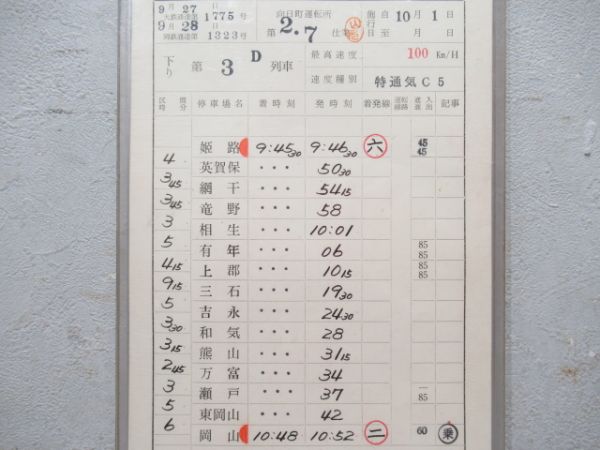 9月27日
大鉄運達第1775号
9月28日
岡鉄運達第1323号
向日町運転所
2.7 仕業
施行
自 10月 1日
至 月 日
下り 第 3 D 列車
最高速度 100 Km/H
速度種別 特通気C5
区時 間分 停車場名 着時刻 発時刻 着発線 運転線路 進入 進出 記事
姫路 9:45 30 9:46 30 六 45 45
4
英賀保 ・・・ 50 30
3 45
網干 ・・・ 54 15
3 45
竜野 ・・・ 58
3
相生 ・・・ 10:01
5
有年 ・・・ 06 85
4 15
上郡 ・・・ 10 15 85 85
9 15
三石 ・・・ 19 30
5
吉永 ・・・ 24 30
3 30
和気 ・・・ 28
3 15
熊山 ・・・ 31 15
2 45
万富 ・・・ 34
3
瀬戸 ・・・ 37 — 85
5
東岡山 ・・・ 42
6
岡山 10:48 10:52 二 60 乗